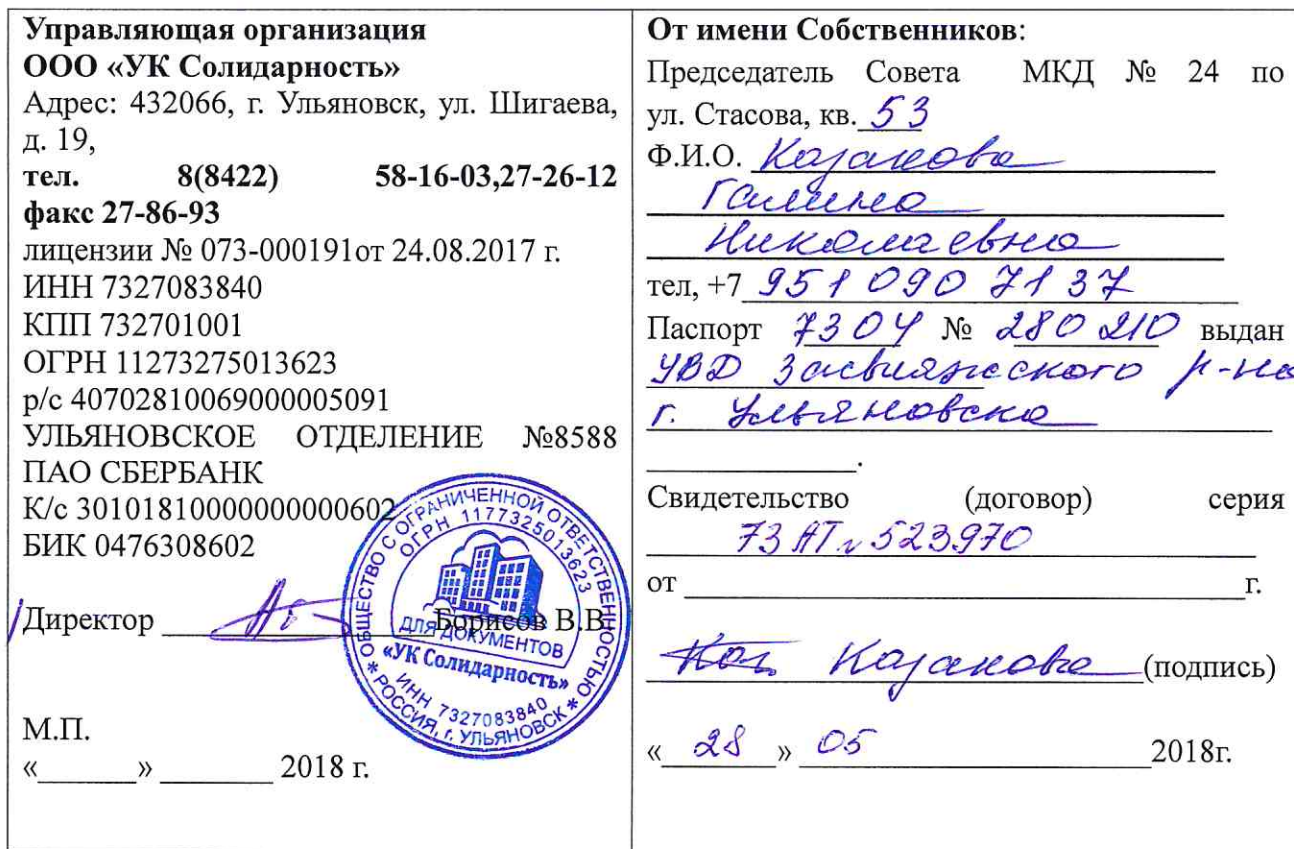 Управляющая организация
ООО «УК Солидарность»
Адрес: 432066, г. Ульяновск, ул. Шигаева,
д. 19,
тел. 8(8422) 58-16-03,27-26-12
факс 27-86-93
лицензии № 073-000191от 24.08.2017 г.
ИНН 7327083840
КПП 732701001
ОГРН 11273275013623
р/с 40702810069000005091
УЛЬЯНОВСКОЕ ОТДЕЛЕНИЕ №8588
ПАО СБЕРБАНК
К/с 30101810000000000602
БИК 0476308602
Директор Борисов В.В.
ОБЩЕСТВО С ОГРАНИЧЕННОЙ ОТВЕТСТВЕННОСТЬЮ
ОГРН 1177325013623
ДЛЯ ДОКУМЕНТОВ
«УК Солидарность»
ИНН 7327083840
* РОССИЯ, г. УЛЬЯНОВСК *
М.П.
«______» ________ 2018 г.
От имени Собственников:
Председатель Совета МКД № 24 по
ул. Стасова, кв. 53
Ф.И.О. Казакова
Галина
Николаевна
тел, +7 951 090 71 37
Паспорт 7304 № 280210 выдан
УВД Засвияжского р-на
г. Ульяновска
Свидетельство (договор) серия
73 АТ № 523970
от ________ г.
Казакова (подпись)
« 28 » 05 2018г.